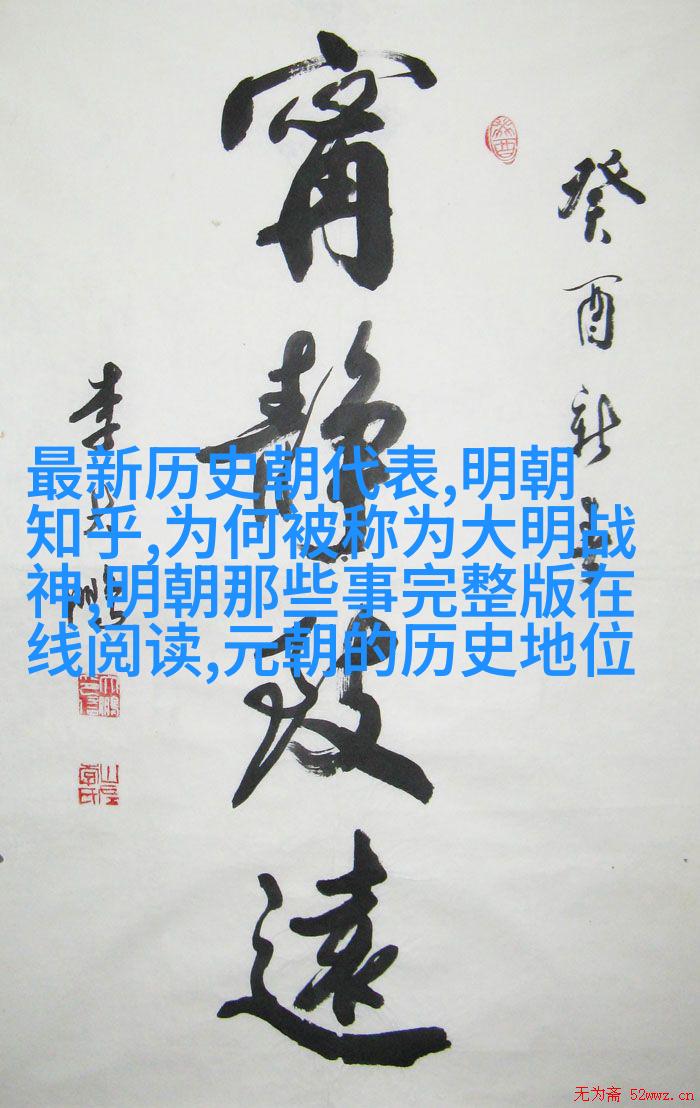 癸酉新
甯靜致遠
李
最新历史朝代表,明朝
知乎,为何被称为大明战
神,明朝那些事完整版在
线阅读,元朝的历史地位
无为斋 52wwz.cn